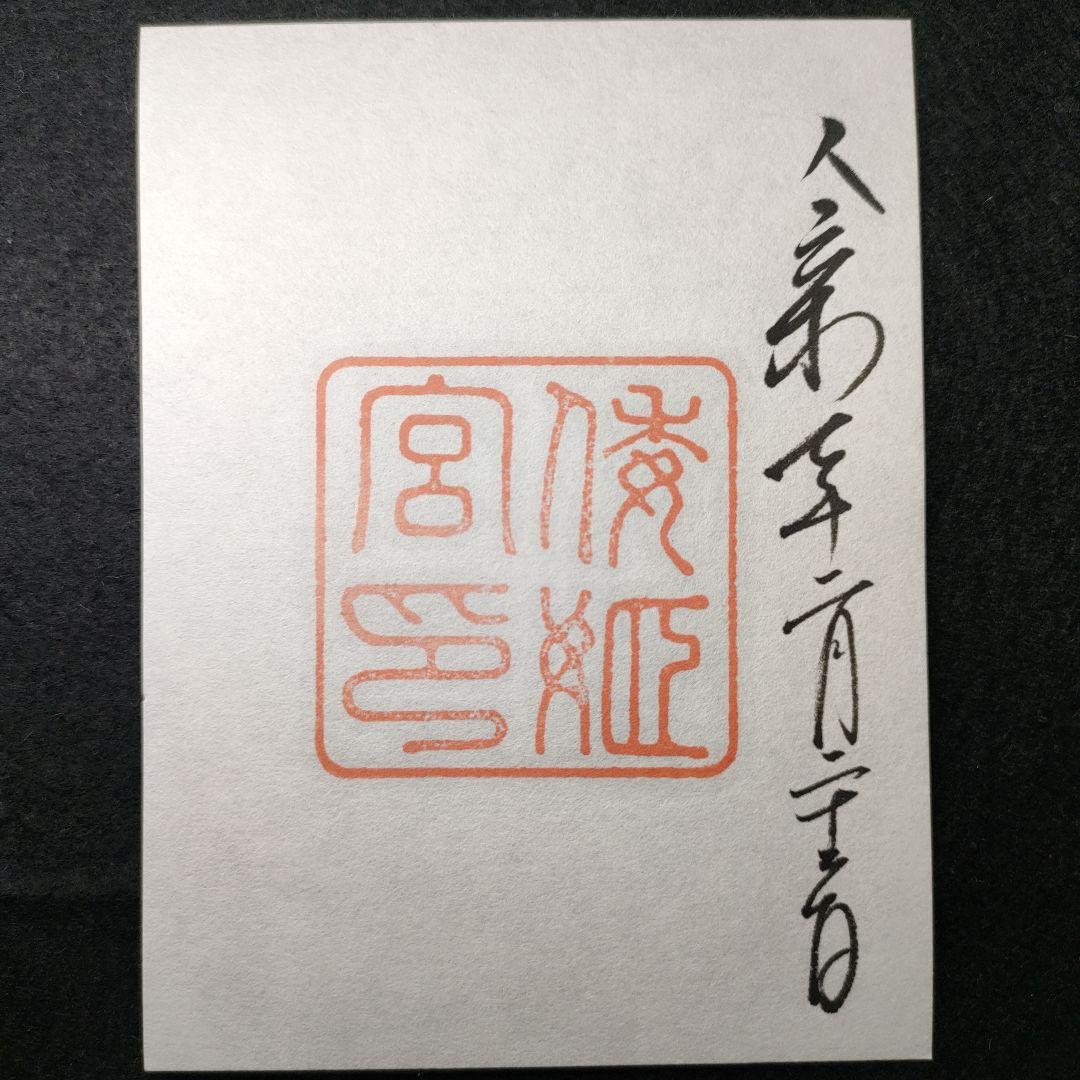 令和七年二月二十日
倭姫
宮印